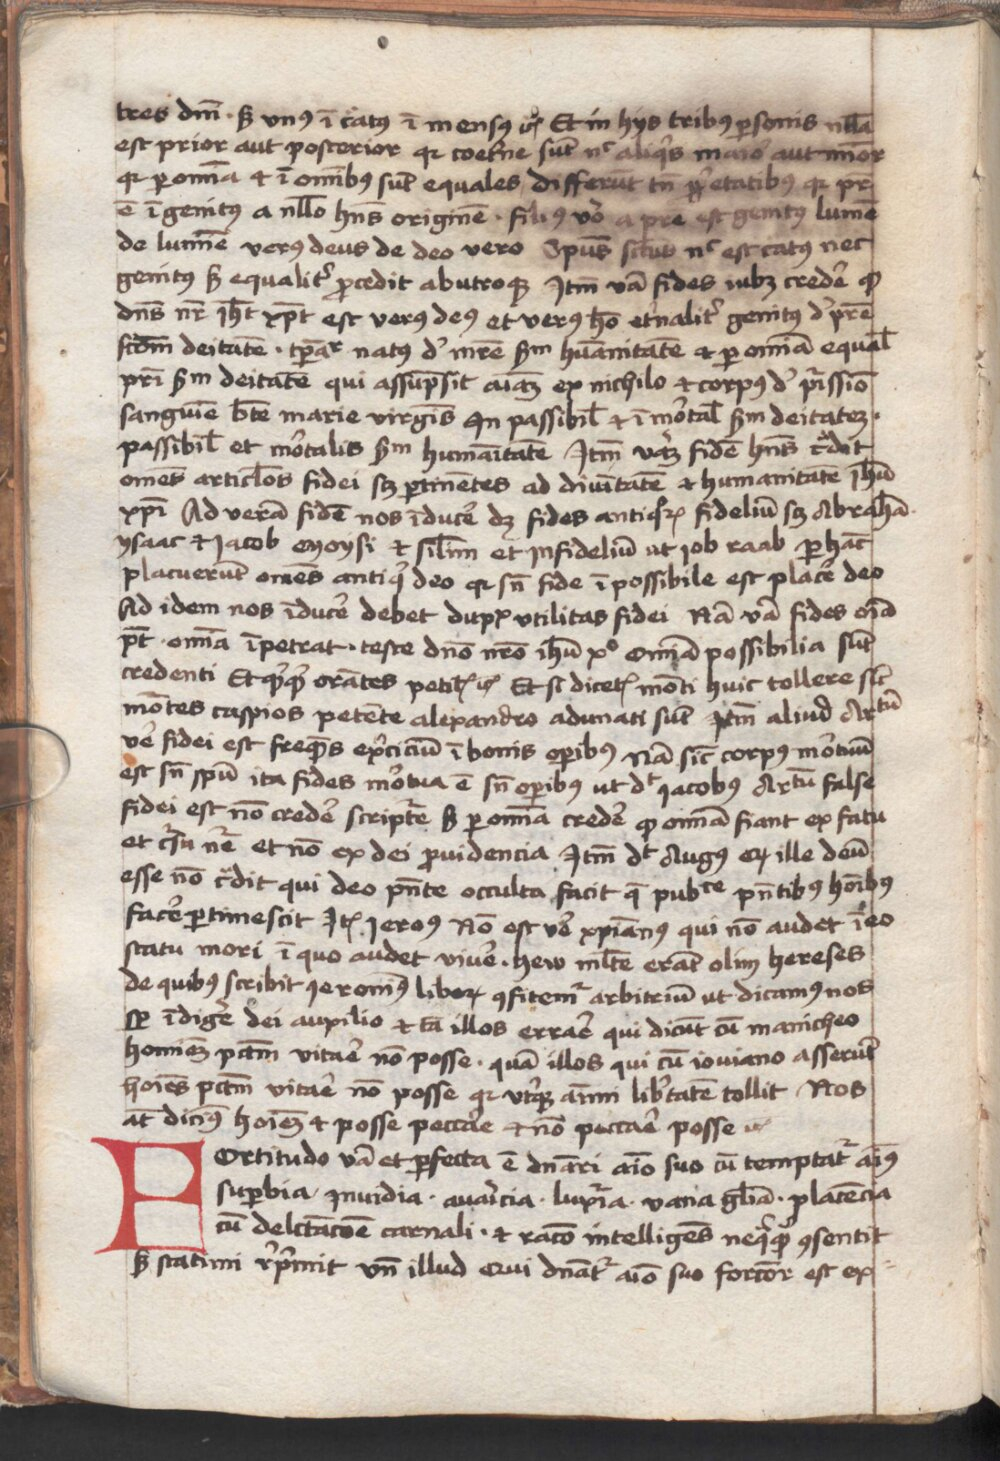 tres dn̄i · sꝫ vnꝰ ī c̄atꝰ ī mensꝰ Et in hijs tribꝰ ꝑsonis nlła
est prior aut posterior qꝛ coet̄ne sūt nᶜ aliqͥs maioͬ aut mīor
qꝛ ꝑ om̄ia ⁊ ī om̄ibꝰ sūt equales differūt tn̄ ꝓp̄etatibꝰ qꝛ pr̄
ē īgenitꝰ a nłło hn̄s originē · filiꝰ v̊o a pr̄e est genitꝰ lumē
de lumīe verꝰ deus de deo vero Spūs sctūs nᶜ est c̄atꝰ nec
genitꝰ sꝫ equalit̾ ꝓcedit ab utroqꝫ Jtm̄ v̄a fides iubꝫ cred̾e ꝙ
dn̄s nr̄ ihūs xp̄s est verꝰ deꝰ et verꝰ hō et̾nalit̾ genitꝰ d̾ pr̄e
scd̄m deitatē · tp̄aľr natꝰ d̾ mr̄e ẜm hūanitatē ⁊ ꝑ om̄ia equał
pr̄i ẜm deitatē qui assūpsit aīaꝫ ex nichilo ⁊ corpꝰ d̾ pͥissīo
sanguīe b̄te marie virgīs Jn passibił ⁊ īmo̾tał ẜm deitateꝫ ·
passibił et mo̾talis ẜm humāitatē Jtm̄ v̾aꝫ fidē hn̄s c̾dit
om̄es articłos fidei sꝫ ꝑtinētes ad diuītatē ⁊ humanitatē ihū
xp̄i Ad verā fidē nos īduc̾e dꝫ fides antiqͦꝝ fideliū sꝫ Abrahā ·
ysaac ⁊ Jacob Moysi ⁊ siłm et Jnfideliū ut iob raab ꝑ hāc
placuerūt om̄es antiqͥ deo qꝛ sn̄ fide īpossibile est plac̾e deo
Ad idem nos īduc̾e debet dupꝉ vtilitas fidei Nā v̄a fides oīa
pt̄ · om̄ia īpetrat · teste dn̄o nr̄o ihū xͦ om̄ia possibilia sūt
credenti Et orātes petitꝭ Et si dicet̾ mōti huic tollere sic̄
mōtes caspios petēte alexandro adunati sūt Jtm̄ aliud Artū
v̾e fidei est freqūs ex̾ciciū ī bonis oꝑibꝰ Nā sic̄ corpꝰ mo̾tuū
est sn̄ spū ita fides mo̾tua ē sn̄ oꝑibꝰ ut dᵗ Jacobꝰ Artū false
fidei est nō cred̾e script̾e sꝫ ꝑ om̄ia cred̾e ꝙ om̄ia fiant ex fatu
et nr̄e et nō ex dei ꝓuidencia Jtm̄ dᵗ Augꝰ ille deū
esse nō c̾dit qui deo pn̄te occulta facit q̄ pubᶜᵉ pn̄tibꝰ hoībꝰ
fac̾e ꝑtimescit Jtꝭ Jeroꝰ Nō est v̾e xp̄ianꝰ qui nō audet ī eo
statu mori ī quo audet viu̾e · hew młte erāt olim hereses
de quibꝰ scribit ieronimꝰ liberꝫ ꝯfitem̾ arbitriū ut dicamꝰ nos
sp̄ īdig̾e dei auxilio ⁊ tā illos erra̾e qui dicūt cū manicheo
homīeꝫ pctm̄ vita̾e nō posse · quā illos qui cū iouiano asserūt
hoīes pctm̄ vita̾e nō posse qꝛ vt̾qꝫ aīmi lib̾tatē tollit Nos
at̄ dicimꝰ hoīeꝫ ⁊ posse pecca̾e ⁊ nō pecca̾e posse
Fortitudo v̄a et ꝑfecta ē dn̄ari aīo suo cū temptat̾ aīꝰ
suꝑbia Jnuidia · auaricia · luxͥia · vana głia · placēcia
cū delctac̄oe carnali · ⁊ rac̄o intelligēs neqͣqͣ ꝯsentit
sꝫ statim rep̾mit vn̄ illud Qui dn̄at̾ aīo suo forcioͬ est ex-